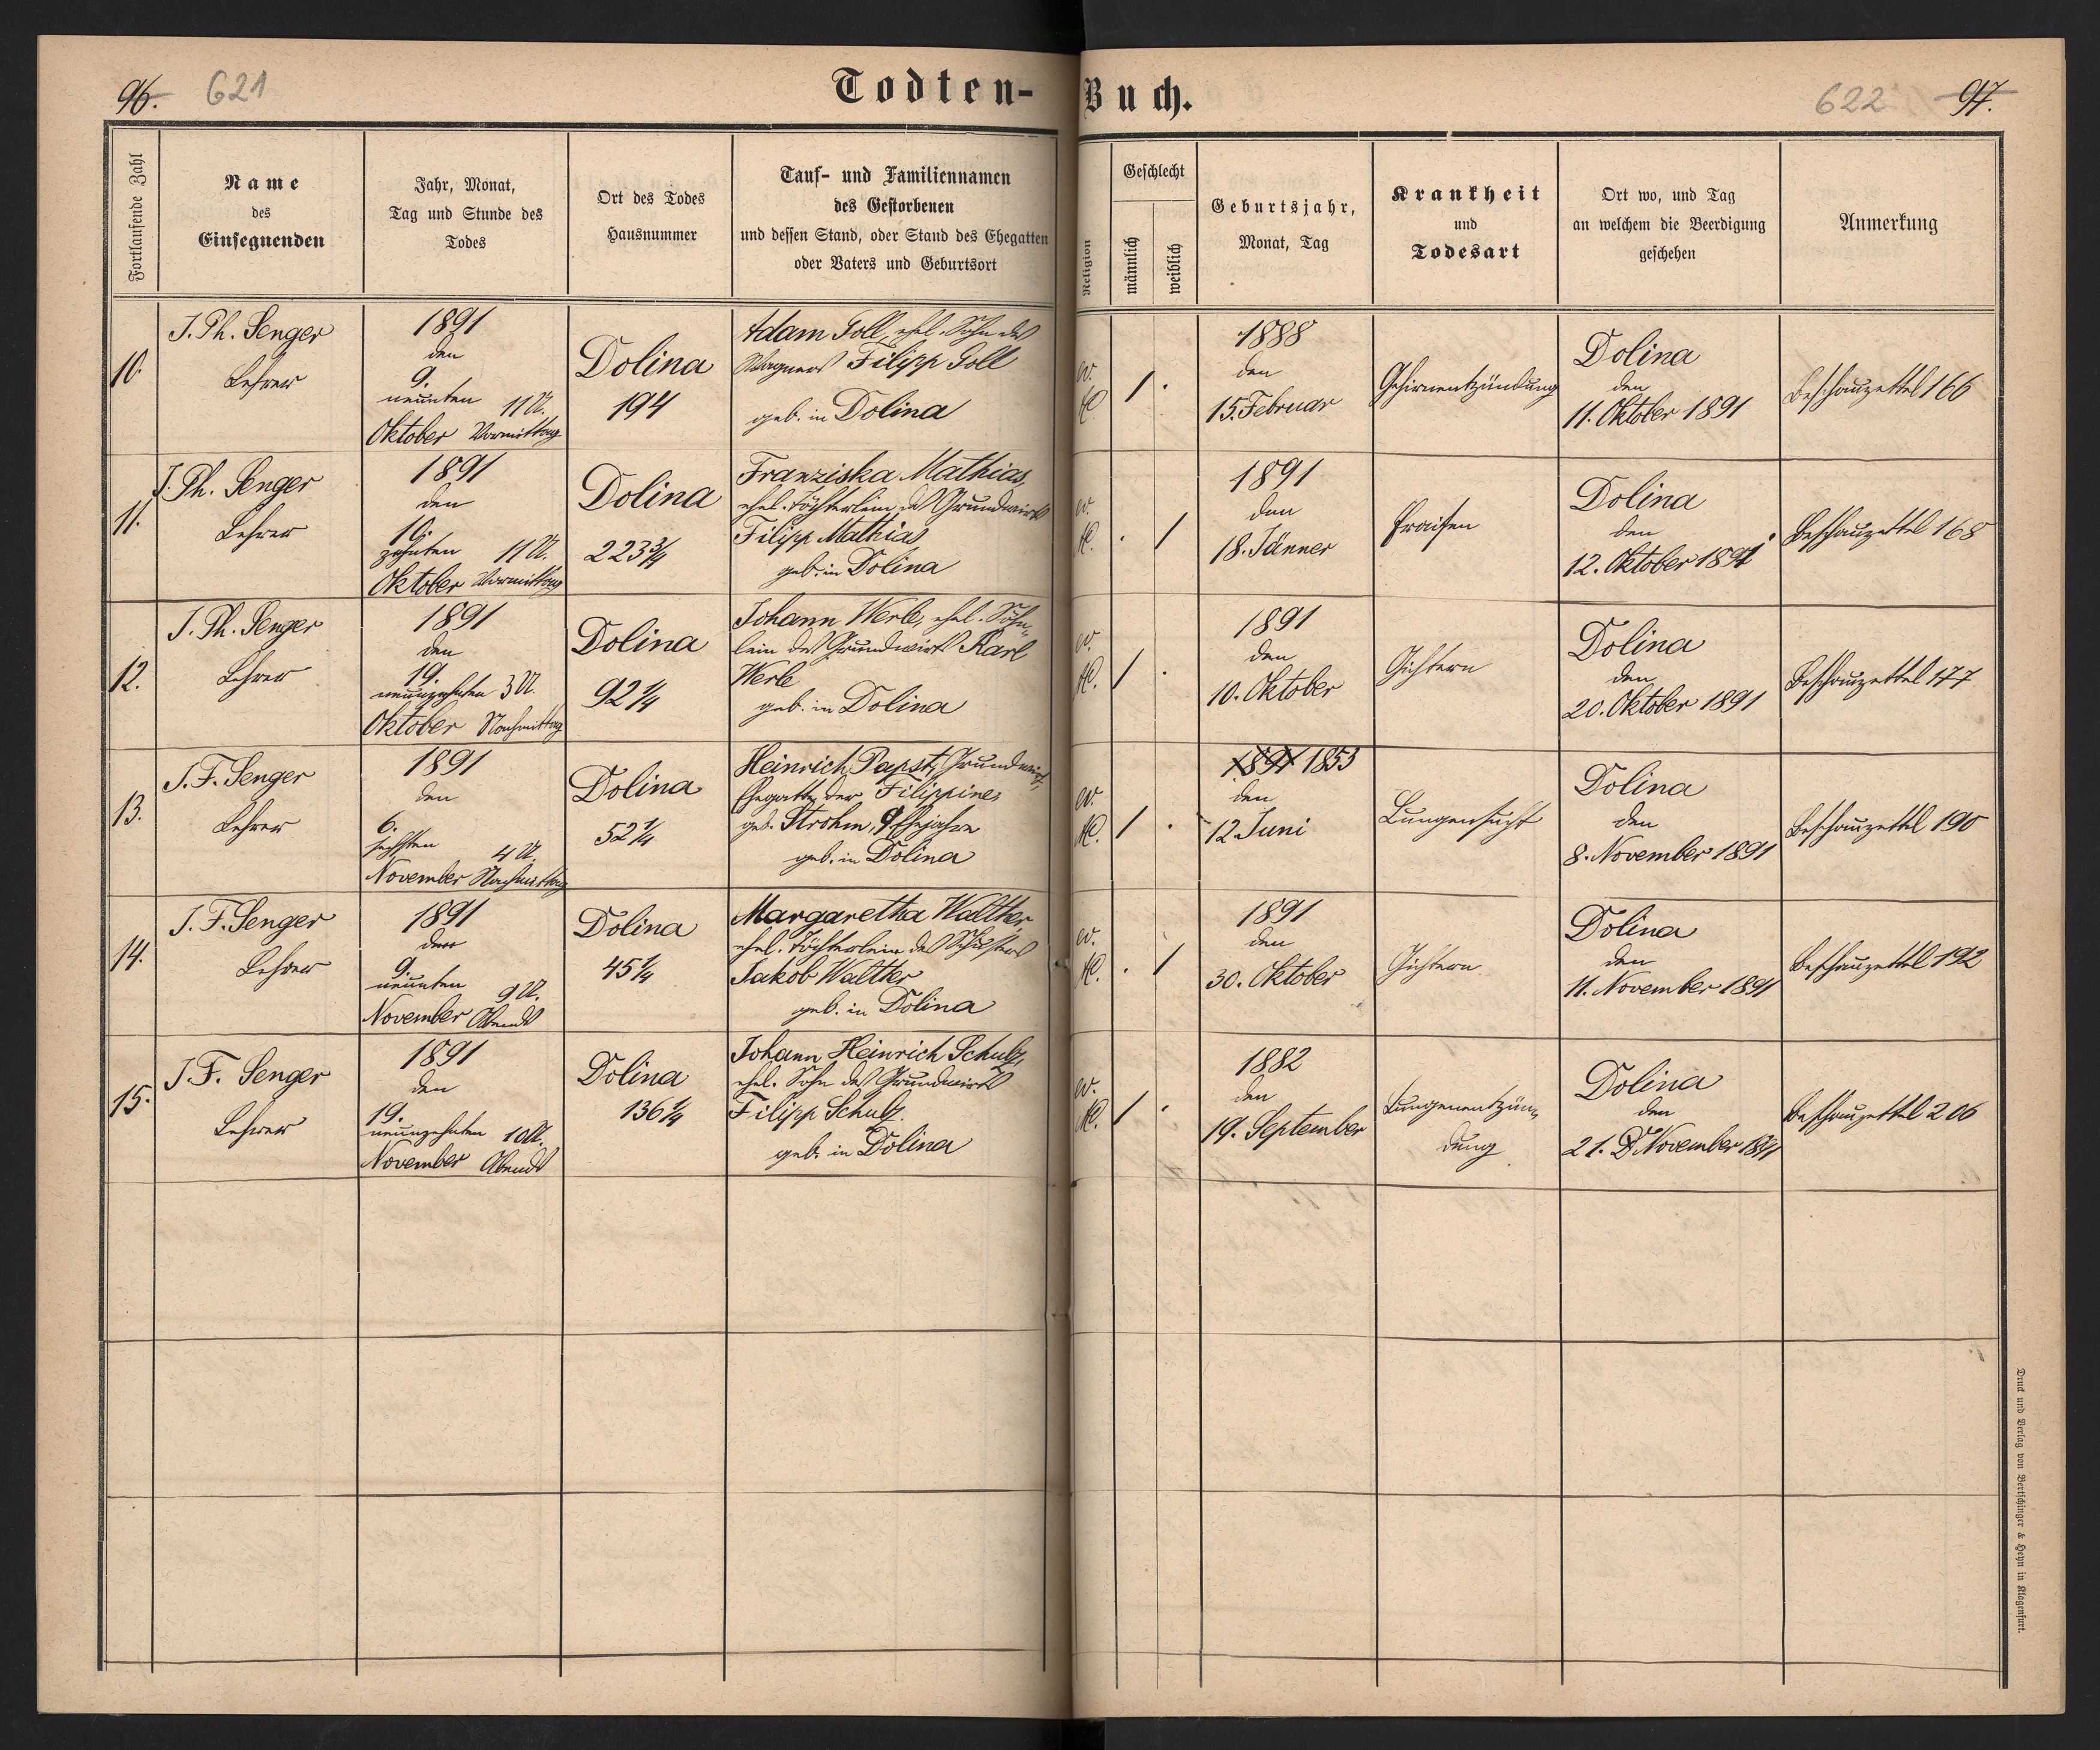 96. 621
Todten-Buch.
622 97.
Fortlaufende Zahl
Name
des
Einsegnenden
Jahr, Monat,
Tag und Stunde des
Todes
Ort des Todes
Hausnummer
Tauf- und Familiennamen
des Gestorbenen
und dessen Stand, oder Stand des Ehegatten
oder Vaters und Geburtsort
Religion
Geschlecht
männlich
weiblich
Geburtsjahr,
Monat, Tag
Krankheit
und
Todesart
Ort wo, und Tag
an welchem die Beerdigung
geschehen
Anmerkung
10.
J. Ph. Senger
Lehrer
1891
den
9.
neunten 11 U.
Oktober Vormittag
Dolina
194
Adam Soll, ehel. Sohn des
Wagners Filipp Soll
geb. in Dolina
ev.
1 .
1888
den
15. Februar
Gehirnentzündung
Dolina
den
11. Oktober 1891
Beschauzettel 166
11.
J. Ph. Senger
Lehrer
1891
den
10.
zehnten 11 U.
Oktober Vormittag
Dolina
223 3/4
Franziska Mathias,
ehel. Töchterlein des Grundwirts
Filipp Mathias
geb. in Dolina
ev.
. 1
1891
den
18. Jänner
Fraisen
Dolina
den
12. Oktober 1891
Beschauzettel 168
12.
J. Ph. Senger
Lehrer
1891
den
19.
neunzehnten 3 U.
Oktober Nachmittag
Dolina
92 1/4
Johann Werle, ehel. Söhn-
lein des Grundwirts Karl
Werle
geb. in Dolina
ev.
1 .
1891
den
10. Oktober
Gichtern
Dolina
den
20. Oktober 1891
Beschauzettel 177
13.
J. F. Senger
Lehrer
1891
den
6.
sechsten 4 U.
November Nachmittag
Dolina
52 1/4
Heinrich Papst, Grundwirt,
Ehegatte der Filippine,
geb. Strohm, 9 Ehejahre
geb. in Dolina
ev.
1 .
1891 1853
den
12. Juni
Lungensucht
Dolina
den
8. November 1891
Beschauzettel 190
14.
J. F. Senger
Lehrer
1891
den
9.
neunten 9 U.
November Abends
Dolina
45 1/4
Margaretha Walther,
ehel. Töchterlein des Schusters
Jakob Walther
geb. in Dolina
ev.
. 1
1891
den
30. Oktober
Gichtern
Dolina
den
11. November 1891
Beschauzettel 192
15.
J. F. Senger
Lehrer
1891
den
19.
neunzehnten 10 U.
November Abends
Dolina
136 1/4
Johann Heinrich Schulz,
ehel. Sohn des Grundwirts
Filipp Schulz.
geb. in Dolina
ev.
1 .
1882
den
19. September
Lungenentzün-
dung
Dolina
den
21. November 1891
Beschauzettel 206
Druck und Verlag von Bertschinger & Heyn in Klagenfurt.